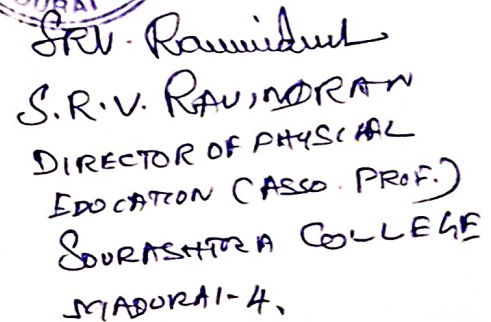 DURAI
SRV. Ravindran
S.R.V. RAVINDRAN
DIRECTOR OF PHYSCIAL
EDOCATION (ASSO. PROF.)
SOURASHTRA COLLEGE
MADURAI-4.